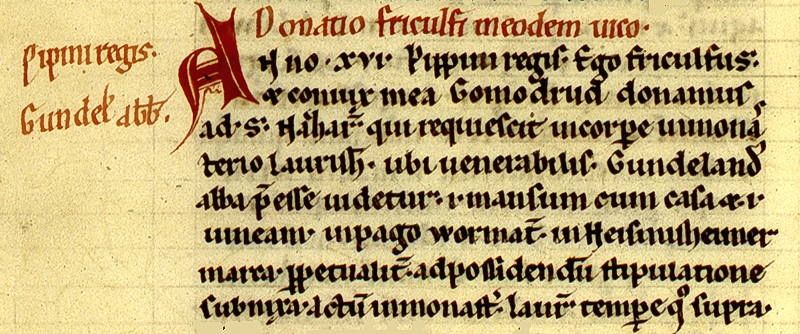 Donatio friculfi in eodem uico.
Pipini regis.
Gundel abb.
Anno. xvi. Pippini regis. Ego friculfus.
& coniux mea Gomodrud donamus
ad. s. N. mar̄ qui requiescit in corpore in monas
terio laurish̄. ubi uenerabilis. Gundeland
abba p̄esse uidetur. i. mansum cum casa &. i.
uineam. in pago wormat̄. in Heisinisheimer
marca. ꝑpetualit̄. ad possidendū stipulatione
subnixa. actū in monast̄. laur̄. tempore q̊ supra.